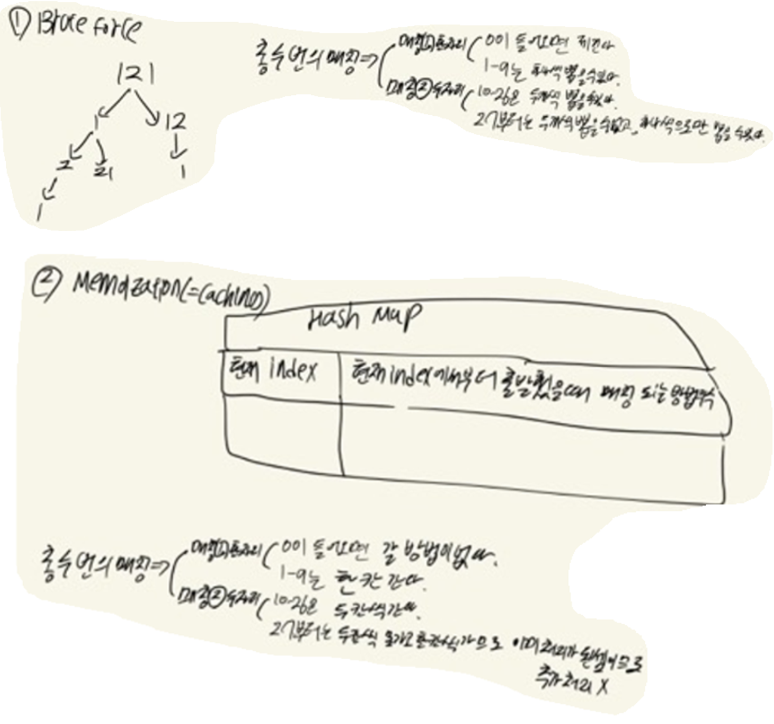 ① Brute force
121
1 12
2 21 1
1
총 수 번의 매칭=>
매칭① 한자리 ( 0이 들어오면 제낀다
1-9는 하나씩 뽑을수있다.
매칭② 두자리 ( 10-26은 두개씩 뽑을수있다.
27부터는 두개씩 뽑을수없고, 하나씩으로만 뽑을 수있다.
② Memoization(=Caching)
Hash Map
현재 index
현재 index에서부터 출발했을때 매칭 되는 방법수
총 수 번의 매칭=>
매칭① 한자리 ( 0이 들어오면 갈 방법이 없다.
1-9는 한 칸 간다.
매칭② 두자리 ( 10-26은 두칸씩 간다.
27부터는 두칸씩 못가고 한칸씩가므로 이미 처리가 된셈이므로
추가처리 X